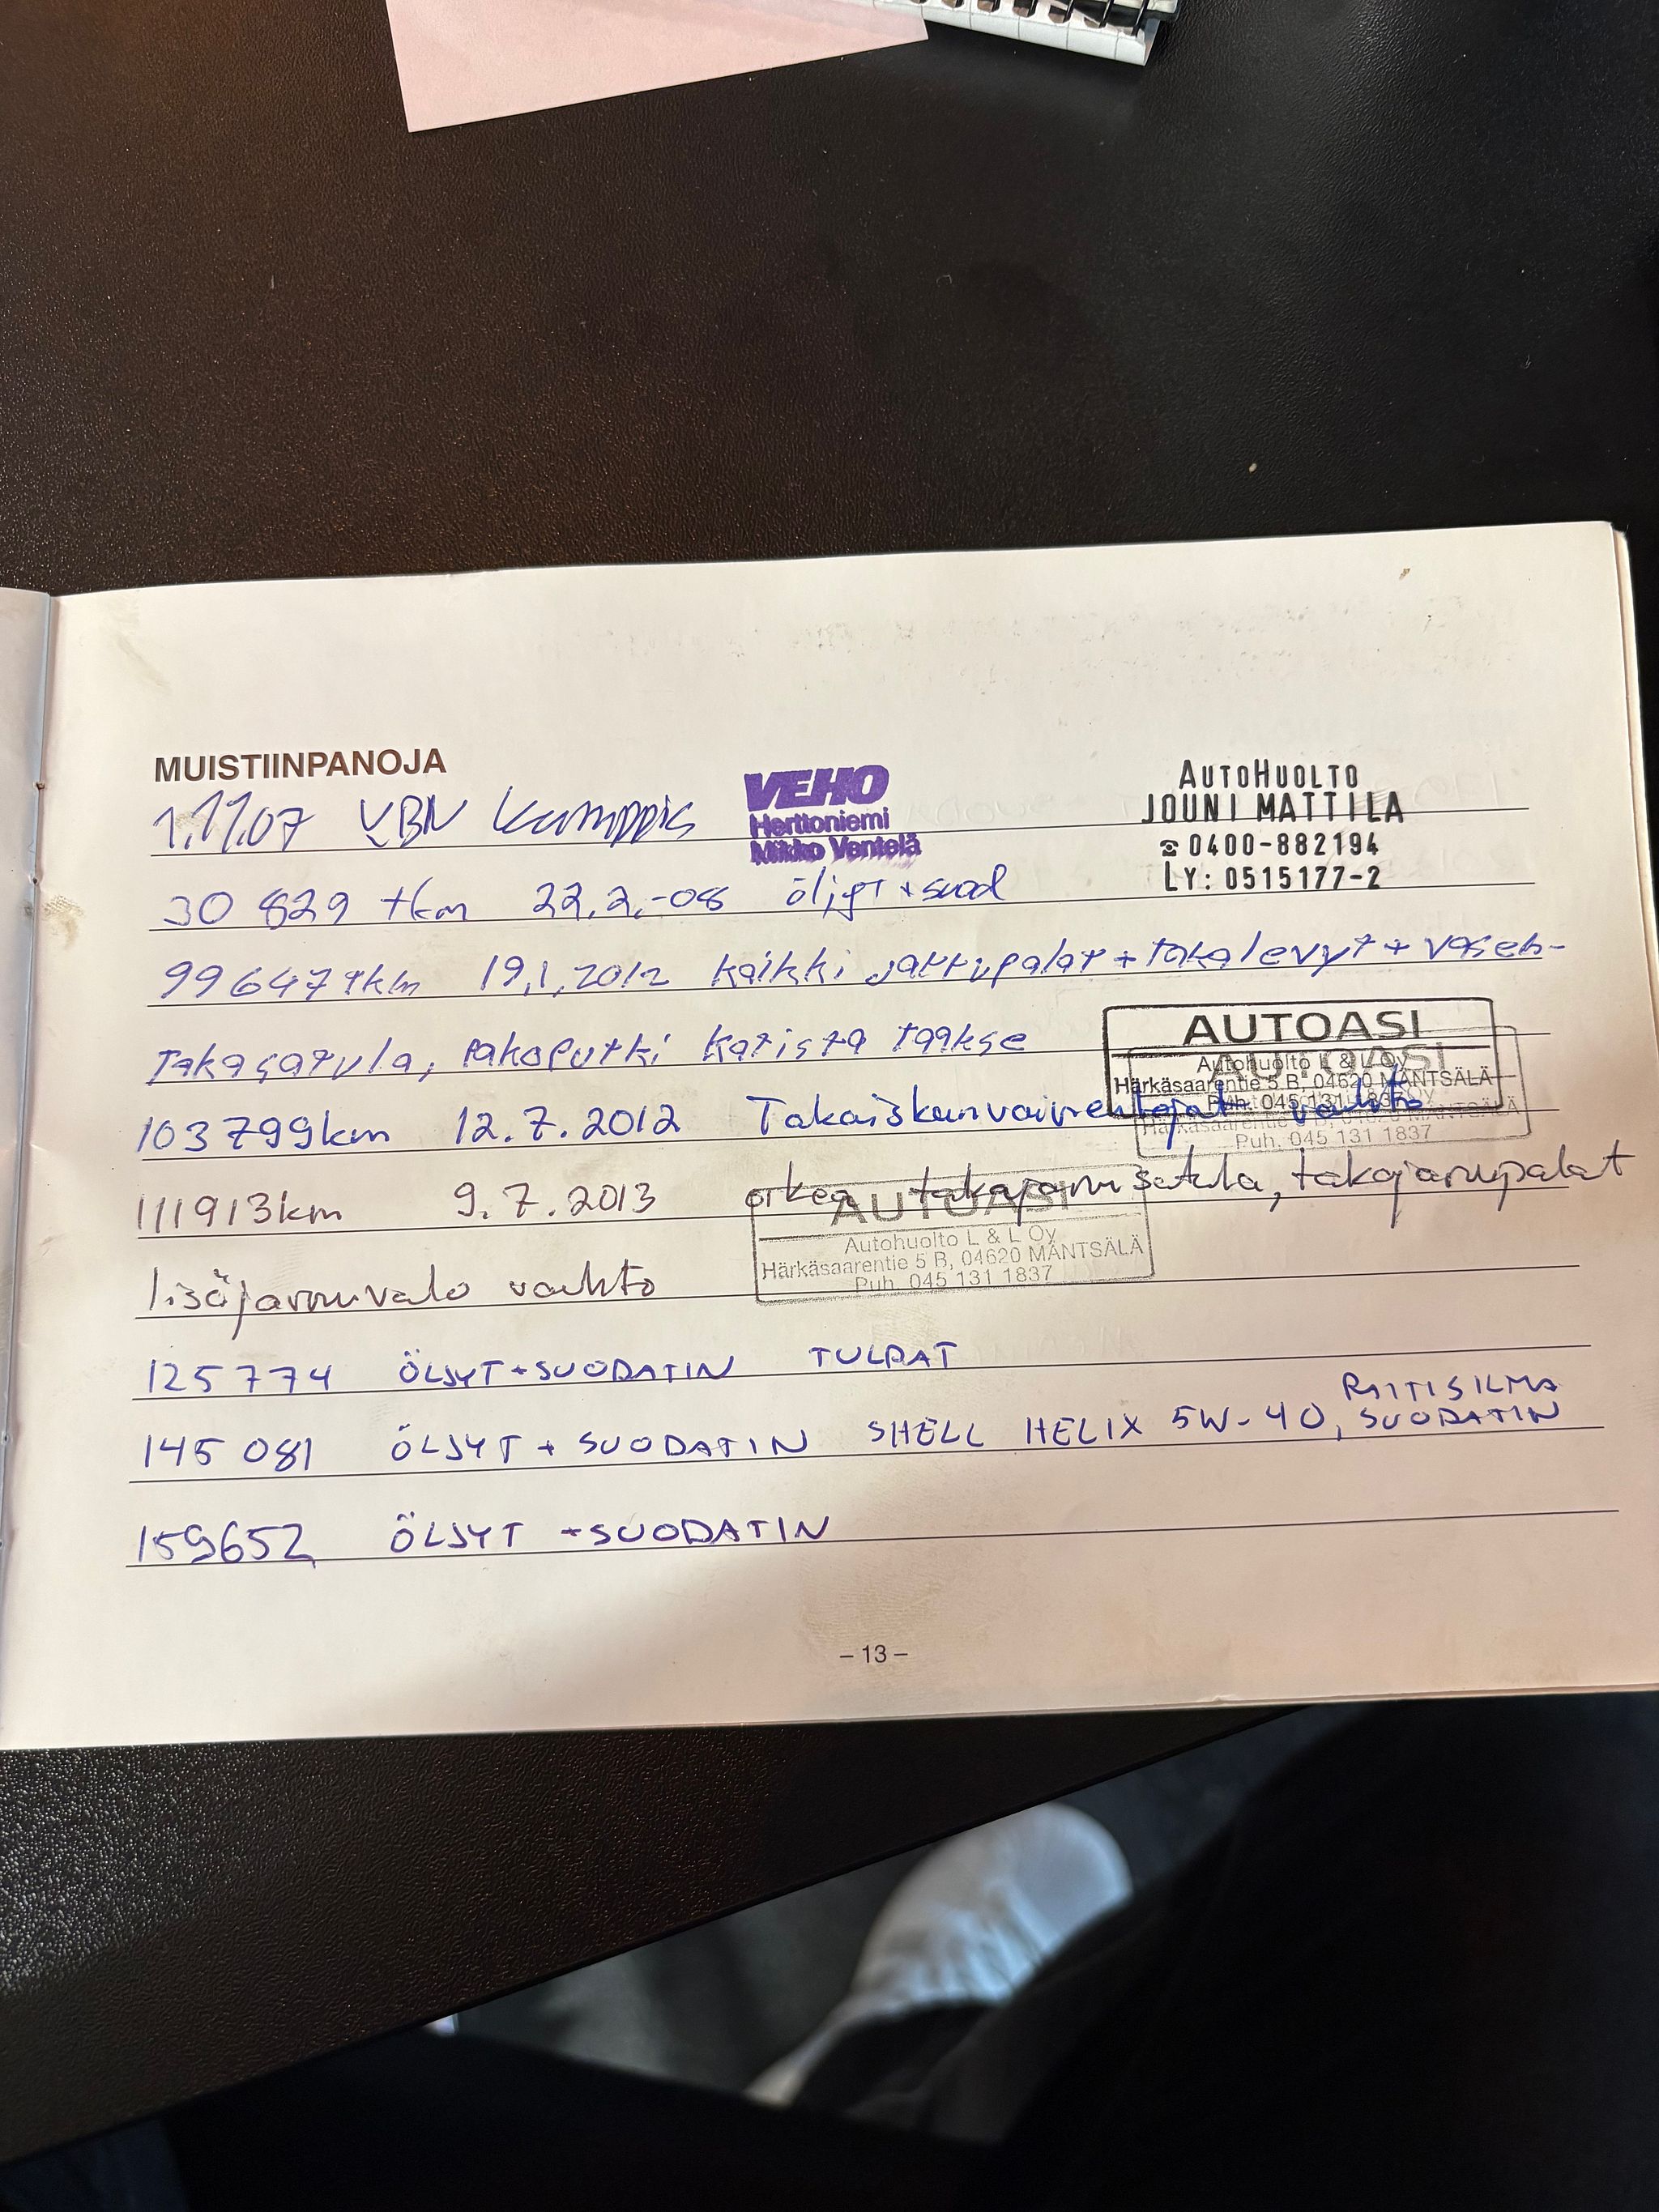 MUISTIINPANOJA
1.11.07
VEHO
Herttoniemi
Mikko Ventelä
AUTOHUOLTO
JOUNI MATTILA
☎ 0400-882194
LY: 0515177-2
30 829 tkm 22.2.-08 öljyt + suod
99647 tkm 19.1.2012 kaikki jarrupalat + takalevyt + vasen-
takasatula, pakoputki katista taakse
AUTOASI
Autohuolto L & L Oy
Härkäsaarentie 5 B, 04620 MÄNTSÄLÄ
Puh. 045 131 1837
AUTOASI
Härkäsaarentie 5 B, 04620 MÄNTSÄLÄ
Puh. 045 131 1837
103799km 12.7.2012 Takaiskunvaimentajat vaihto
111913km 9.7.2013 oikea takajarrusatula, takajarrupalat
AUTOASI
Autohuolto L & L Oy
Härkäsaarentie 5 B, 04620 MÄNTSÄLÄ
Puh. 045 131 1837
lisäjarruvalo vaihto
125774 ÖLJYT + SUODATIN TULPAT
145 081 ÖLJYT + SUODATIN SHELL HELIX 5W-40, RAITISILMA
SUODATIN
159652 ÖLJYT + SUODATIN
– 13 –